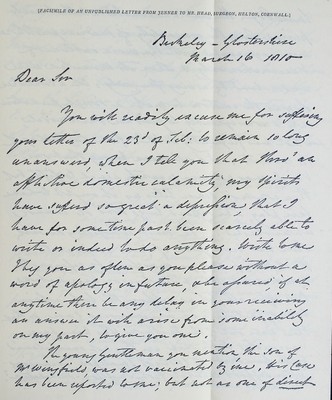 [FACSIMILE OF AN UNPUBLISHED LETTER FROM JENNER TO MR. HEAD, SURGEON, HELSTON, CORNWALL.]
Berkeley - Glostershire
March 16 1810
Dear Sir
You will readily excuse me for suffering
your letter of the 23d of Feb: to remain so long
unanswered, when I tell you that thro' an
afflictive domestic calamity, my spirits
have suffer'd so great a depression that I
have for some time past been scarcely able to
write or indeed to do anything. Write to me
I beg you as often as you please without a
word of apology in future, & be assured if at
anytime there be any delay in your receiving
an answer it will arise from some inability
on my part, to give you one.
The young Gentleman you mention the son of
Mr Wingfield, was not vaccinated by me. His Case
has been reported to me; but not as one of direct